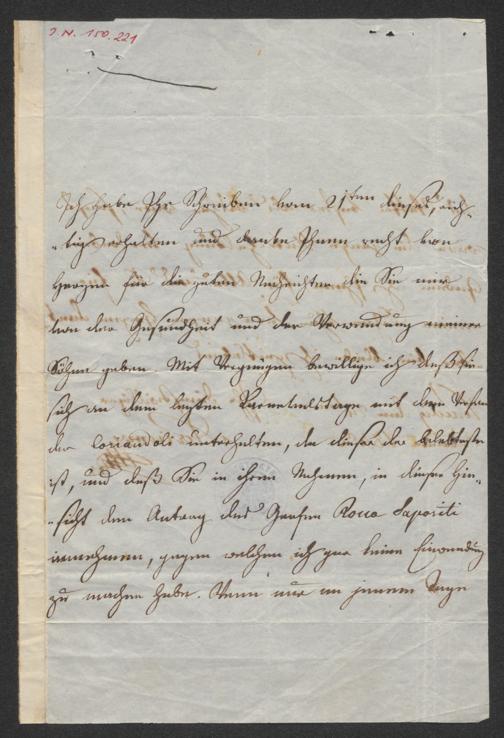 J.N. 150.221
Ich habe Ihr Schreiben vom 21ten dieses, rich-
-tig erhalten und danke Ihnen recht von
Herzen für die guten Nachrichten die Sie mir
von der Gesundheit und der Verwendung meiner
Söhne geben. Mit Vergnügen bewillige ich daß sie
sich an dem letzten Carnevalstage mit dem Werfen
der Coriandoli unterhalten, da dieser der belebteste
ist, und daß Sie in ihrem Nahmen, in dieser Hin-
-sicht den Antrag des Grafen Rocca Saporiti
annehmen, gegen welchen ich gar keine Einwendung
zu machen habe. Wenn nur an jenem Tage